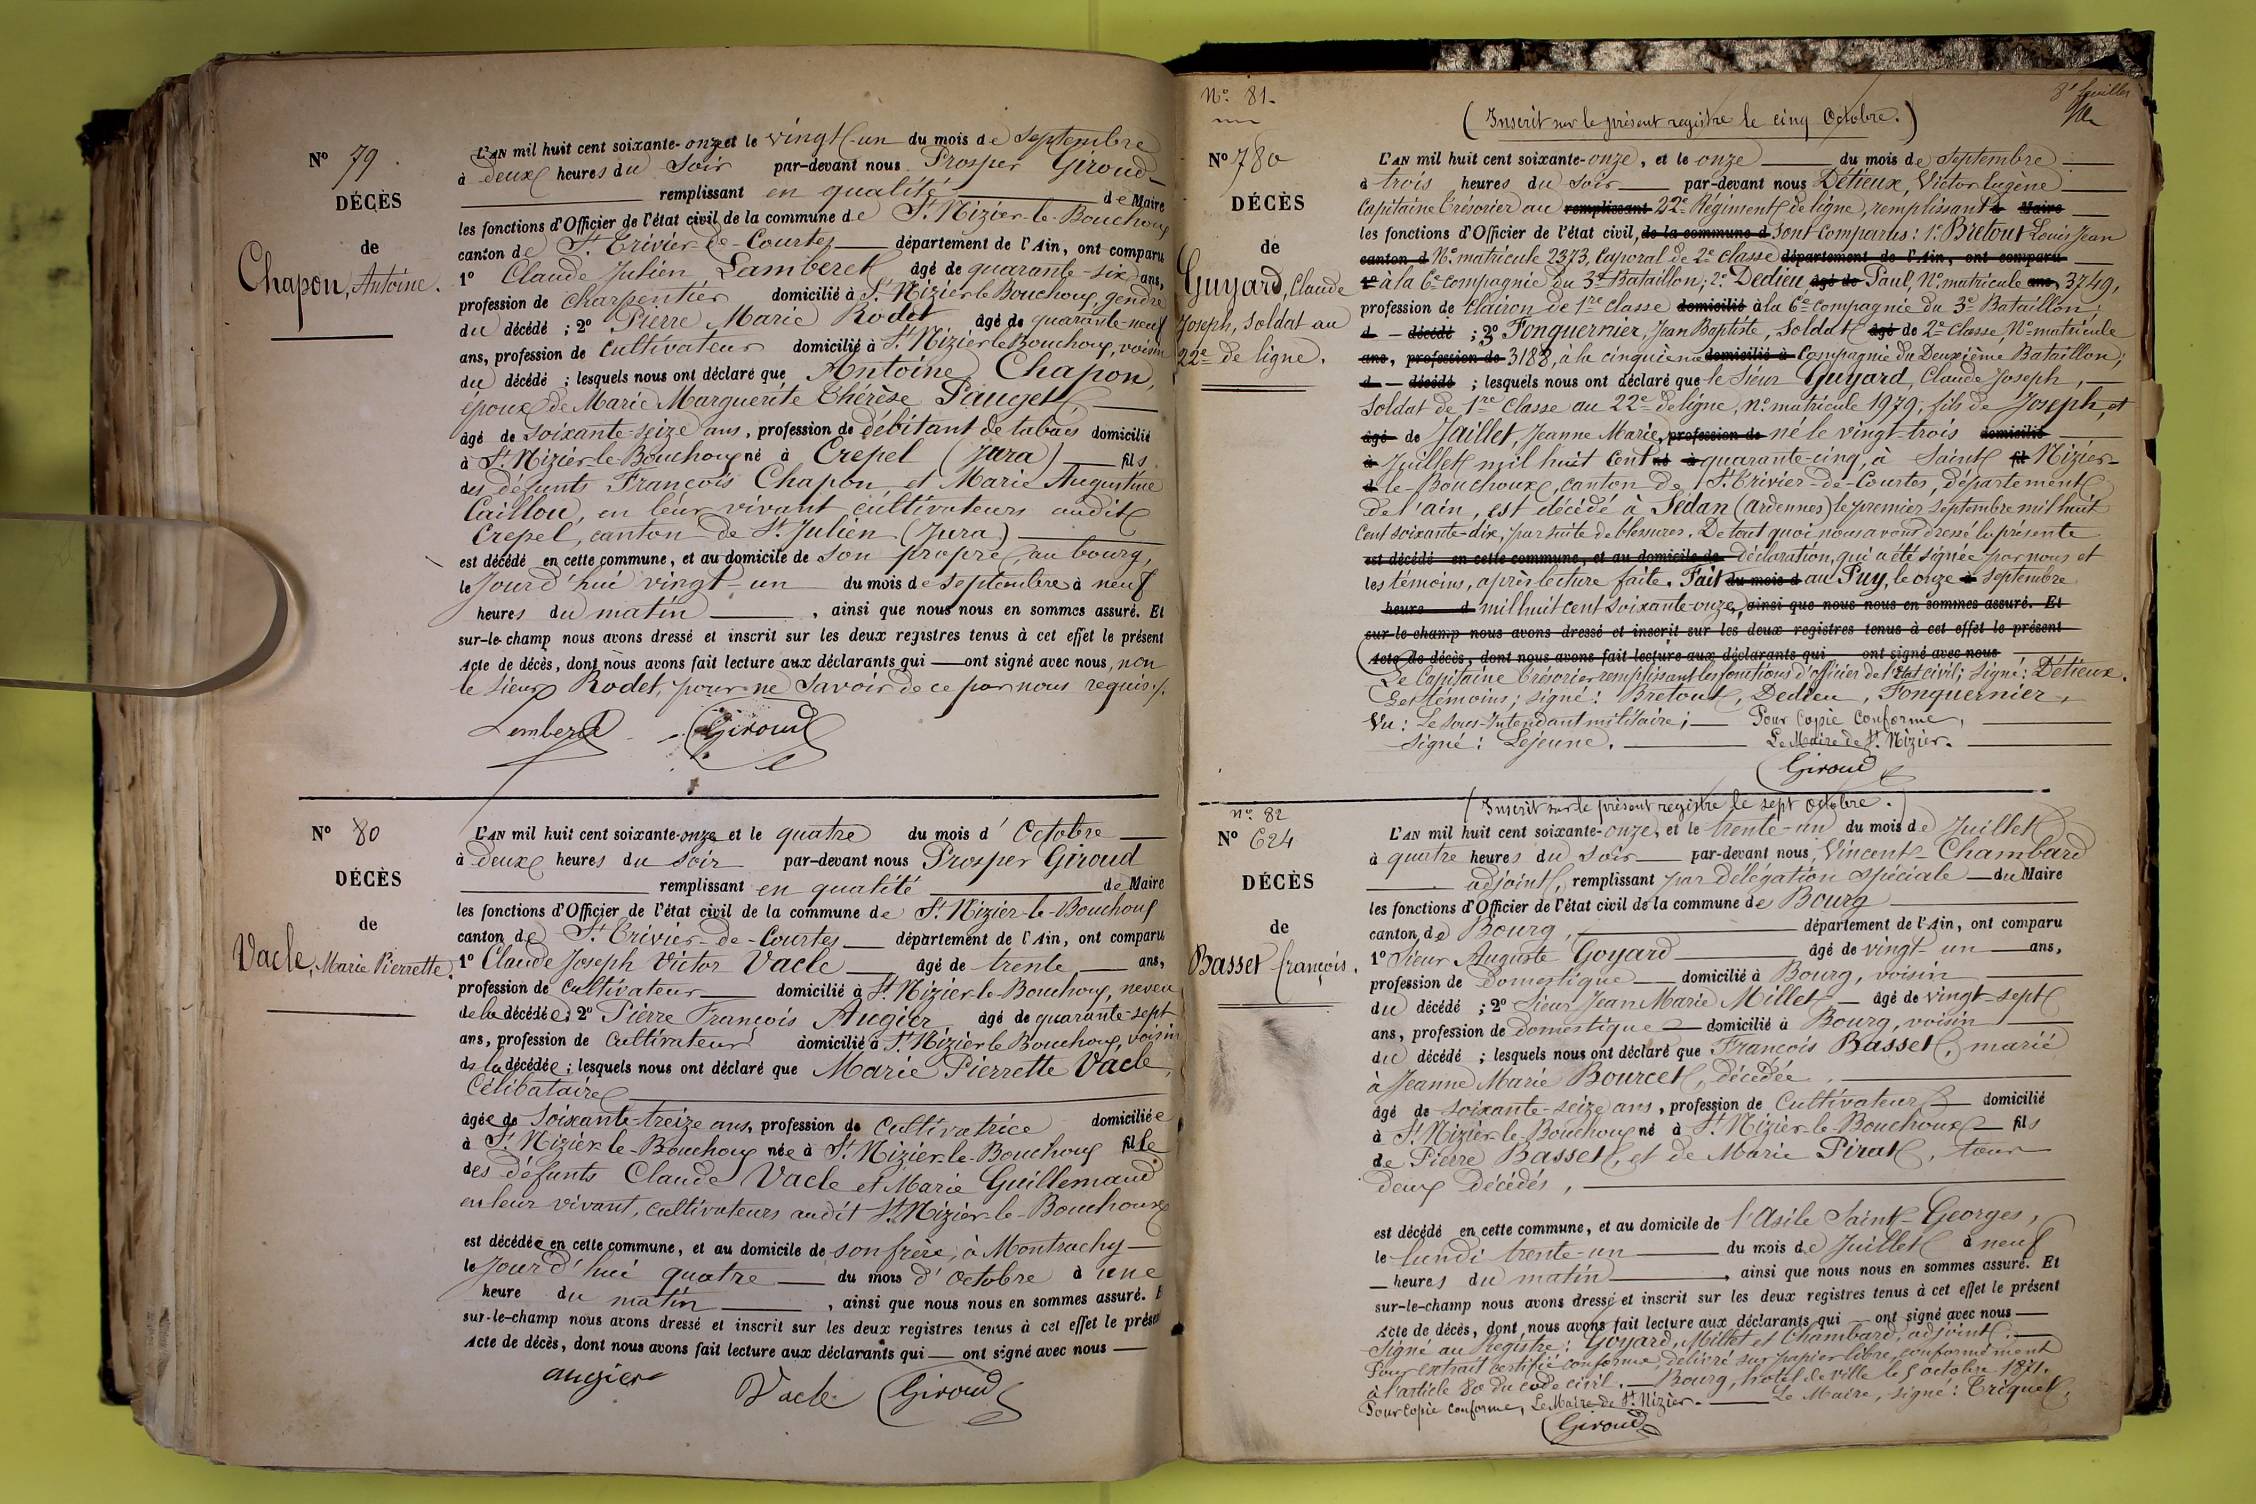 N° 79.
DÉCÈS
de
Chapon, Antoine.
L'AN mil huit cent soixante-onze et le vingt-un du mois de Septembre
à deux heures du Soir par-devant nous Prosper Giroud
remplissant en qualité de Maire
les fonctions d'Officier de l'état civil de la commune de St. Nizier-le-Bouchoux
canton de St. Trivier-de-Courtes département de l'Ain, ont comparu
1° Claude Julien Lamberet âgé de quarante-six ans,
profession de charpentier domicilié à St. Nizier le Bouchoux, gendre
du décédé ; 2° Pierre Marie Rodet âgé de quarante-neuf
ans, profession de Cultivateur domicilié à St. Nizier le Bouchoux, voisin
du décédé ; lesquels nous ont déclaré que Antoine Chapon,
époux de Marie Marguerite Thérèse Pauget,
âgé de soixante-seize ans, profession de débitant de tabacs domicilié
à St. Nizier-le-Bouchoux né à Crepel (Jura) fils
des défunts François Chapon et Marie Augustine
Caillou, en leur vivant cultivateurs audit
Crepel, canton de St. Julien (Jura)
est décédé en cette commune, et au domicile de son propre, au bourg,
le Jourd'hui vingt-un du mois de Septembre à neuf
heures du matin, ainsi que nous nous en sommes assuré. Et
sur-le-champ nous avons dressé et inscrit sur les deux registres tenus à cet effet le présent
Acte de décès, dont nous avons fait lecture aux déclarants qui ont signé avec nous, non
le Sieur Rodet, pour ne Savoir de ce par nous requis ./.
Lamberet Giroud
N° 80
DÉCÈS
de
Vacle, Marie Pierrette.
L'AN mil huit cent soixante-onze et le quatre du mois d'Octobre
à deux heures du soir par-devant nous Prosper Giroud
remplissant en qualité de Maire
les fonctions d'Officier de l'état civil de la commune de St. Nizier-le-Bouchoux
canton de St. Trivier-de-Courtes département de l'Ain, ont comparu
1° Claude Joseph Victor Vacle âgé de trente ans,
profession de Cultivateur domicilié à St. Nizier-le-Bouchoux, neveu
de la décédée ; 2° Pierre François Augier âgé de quarante-sept
ans, profession de Cultivateur domicilié à St. Nizier le Bouchoux, voisin
de la décédée ; lesquels nous ont déclaré que Marie Pierrette Vacle,
Célibataire
âgée de soixante-treize ans, profession de Cultivatrice domiciliée
à St. Nizier-le-Bouchoux née à St. Nizier-le-Bouchoux fille
des défunts Claude Vacle et Marie Guillemaud
en leur vivant, cultivateurs audit St. Nizier-le-Bouchoux
est décédée en cette commune, et au domicile de son frère, à Montrachy
le Jourd'hui quatre du mois d'Octobre à une
heure du matin, ainsi que nous nous en sommes assuré. E
sur-le-champ nous avons dressé et inscrit sur les deux registres tenus à cet effet le présen
Acte de décès, dont nous avons fait lecture aux déclarants qui ont signé avec nous
augier Vacle Giroud
N° 81.
(Inscrit sur le présent registre le cinq Octobre.)
N° 780
DÉCÈS
de
Guyard, Claude
Joseph, Soldat au
22e de ligne.
L'AN mil huit cent soixante-onze, et le onze du mois de Septembre
à trois heures du Soir par-devant nous Détieux, Victor Eugène
Capitaine Trésorier au remplissant 22e Régiment de ligne, remplissant d Maire
les fonctions d'Officier de l'état civil, de la commune d Sont Comparus : 1° Bretout Louis Jean
canton d N° matricule 2373, Caporal de 2e classe département de l'Ain, ont comparu
1° à la 6e compagnie du 3e Bataillon ; 2° Dedieu âgé de Paul, N° matricule ans, 3749,
profession de Clairon de 1re classe domicilié à la 6e compagnie du 3e Bataillon,
d décédé ; 3° Fonquernier, Jean Baptiste, Soldat âgé de 2e classe, N° matricule
ans, profession de 3188, à la cinquième domicilié à Compagnie du Deuxième Bataillon ;
d décédé ; lesquels nous ont déclaré que le Sieur Guyard, Claude Joseph,
Soldat de 1re classe au 22e de ligne, n° matricule 1979, fils de Joseph, et
âgé de Jaillet, Jeanne Marie, profession de né le vingt-trois domicilié
à Juillet mil huit Cent né à quarante-cinq, à Saint fil Nizier-
d le-Bouchoux, canton de St. Trivier-de-Courtes, Département
de l'ain, est décédé à Sedan (ardennes) le premier septembre mil huit
Cent soixante-dix, par suite de blessures. De tout quoi nous avons dressé la présente
est décédé en cette commune, et au domicile de Déclaration, qui a été signée par nous et
les témoins, après lecture faite. Fait du mois d au Puy, le onze à Septembre
heure d mil huit cent soixante-onze, ainsi que nous nous en sommes assuré. Et
sur-le-champ nous avons dressé et inscrit sur les deux registres tenus à cet effet le présent
Acte de décès, dont nous avons fait lecture aux déclarants qui ont signé avec nous
Le Capitaine Trésorier remplissant les fonctions d'officier de l'Etat civil ; signé : Détieux.
Les témoins ; signé : Bretout, Dedieu, Fonquernier,
Vu : Le sous-Intendant militaire ; Pour Copie Conforme,
signé : Lejeune. Le Maire de St. Nizier.
Giroud
(Inscrit sur le présent registre le sept Octobre.)
n° 82
N° 624
DÉCÈS
de
Basset françois.
L'AN mil huit cent soixante-onze, et le trente-un du mois de Juillet
à quatre heures du Soir par-devant nous, Vincent Chambard
adjoint, remplissant par délégation spéciale du Maire
les fonctions d'Officier de l'état civil de la commune de Bourg
canton de Bourg, département de l'Ain, ont comparu
1° Sieur Auguste Goyard âgé de vingt-un ans,
profession de Domestique domicilié à Bourg, voisin
du décédé ; 2° Sieur Jean Marie Millet âgé de vingt-sept
ans, profession de domestique domicilié à Bourg, voisin
du décédé ; lesquels nous ont déclaré que François Basset, marié
à Jeanne Marie Bourcet, décédée,
âgé de soixante-seize ans, profession de Cultivateur domicilié
à St. Nizier-le-Bouchoux né à St. Nizier-le-Bouchoux fils
de Pierre Basset, et de Marie Pirat, tous
deux Décédés,
est décédé en cette commune, et au domicile de l'Asile Saint-Georges,
le lundi trente-un du mois de Juillet à neuf
heures du matin, ainsi que nous nous en sommes assuré. Et
sur-le-champ nous avons dressé et inscrit sur les deux registres tenus à cet effet le présent
Acte de décès, dont nous avons fait lecture aux déclarants qui ont signé avec nous
Signé au Registre : Goyard, Millet et Chambard, adjoint.
Pour extrait certifié conforme, délivré sur papier libre, conformément
à l'article 80 du code civil. Bourg, hôtel de ville le 5 octobre 1871.
Pour copie conforme, Le Maire de St. Nizier. Le Maire, signé : Triquet,
Giroud